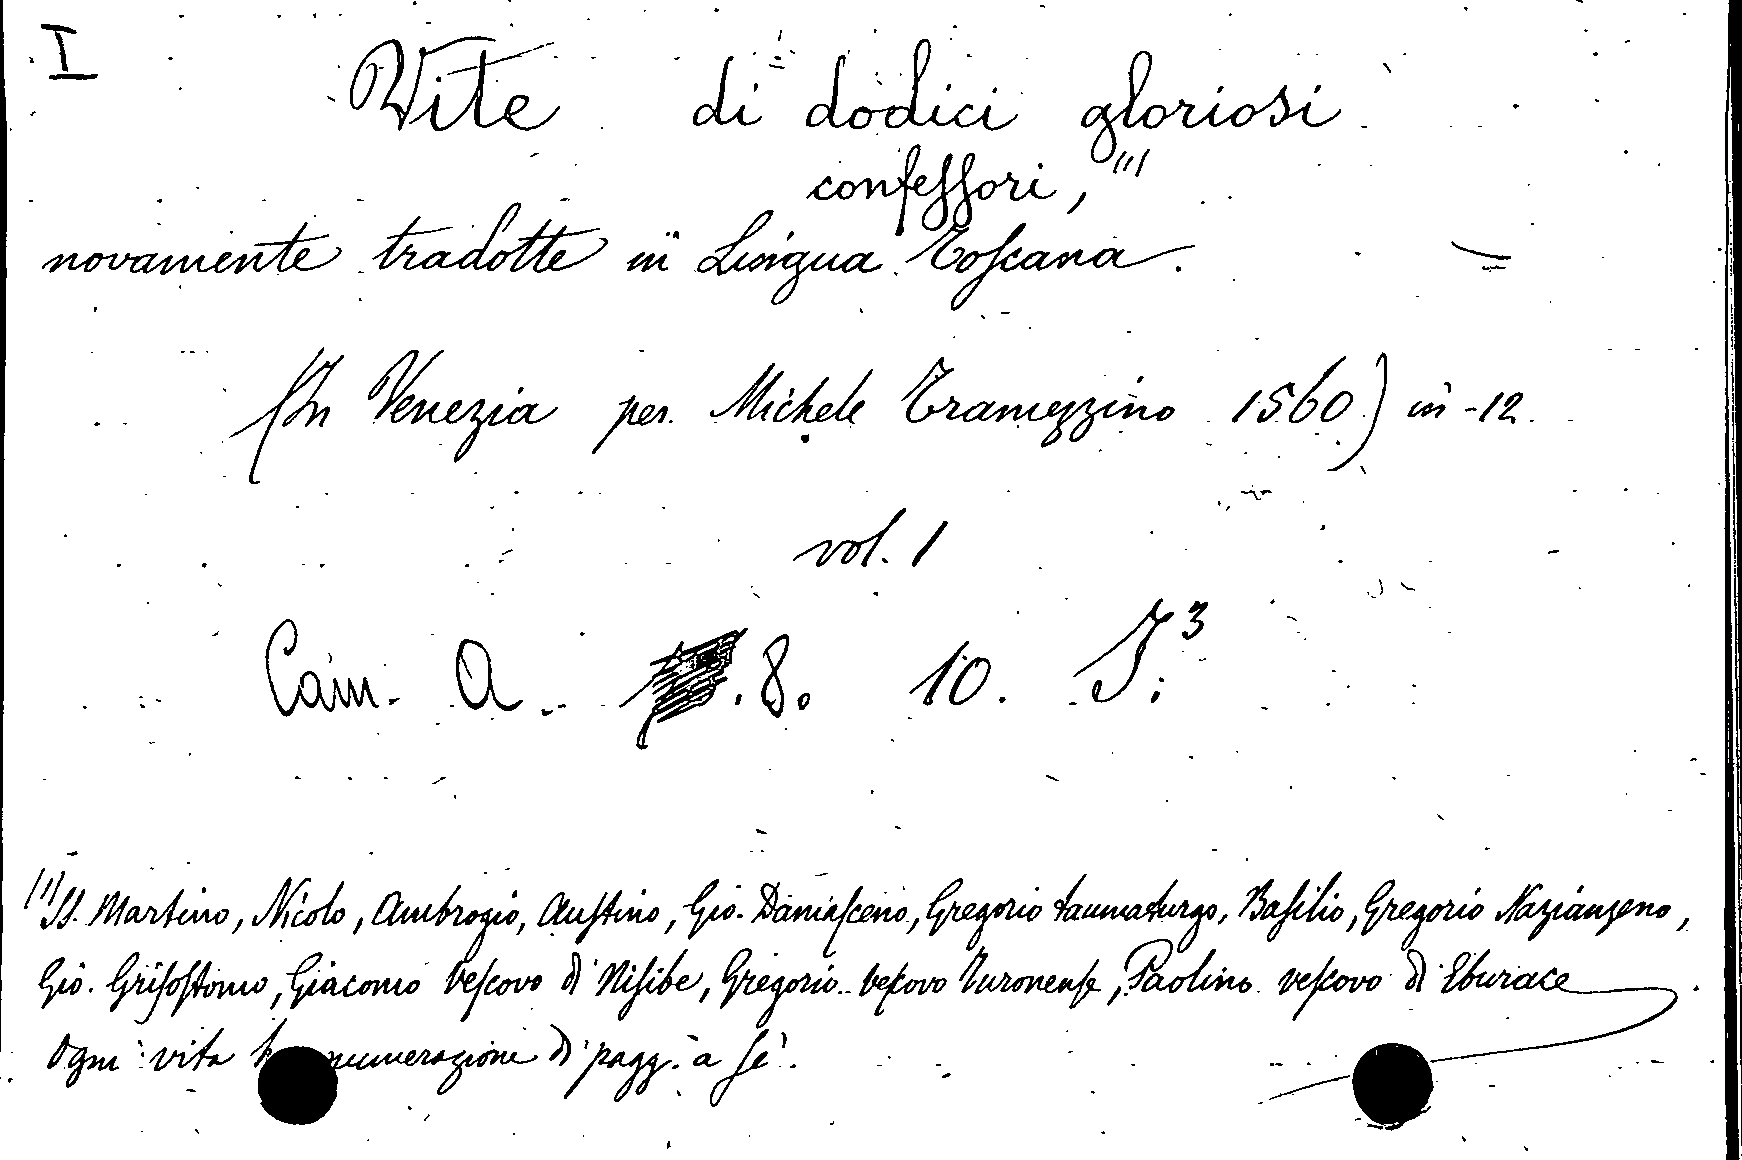 I
Vite di dodici gloriosi
confessori, (1)
novamente tradotte in Lingua Toscana.
(In Venezia per Michele Tramezzino 1560) in-12
vol. 1
Cam. A. .8. 10. I.3
(1) SS. Martino, Nicolo, Ambrogio, Austino, Gio. Damasceno, Gregorio taumaturgo, Basilio, Gregorio Nazianzeno,
Gio. Grisostomo, Giacomo vescovo di Nisibe, Gregorio vescovo Turonense, Paolino vescovo di Eburace
Ogni vita numerazione di pagg. a sè.